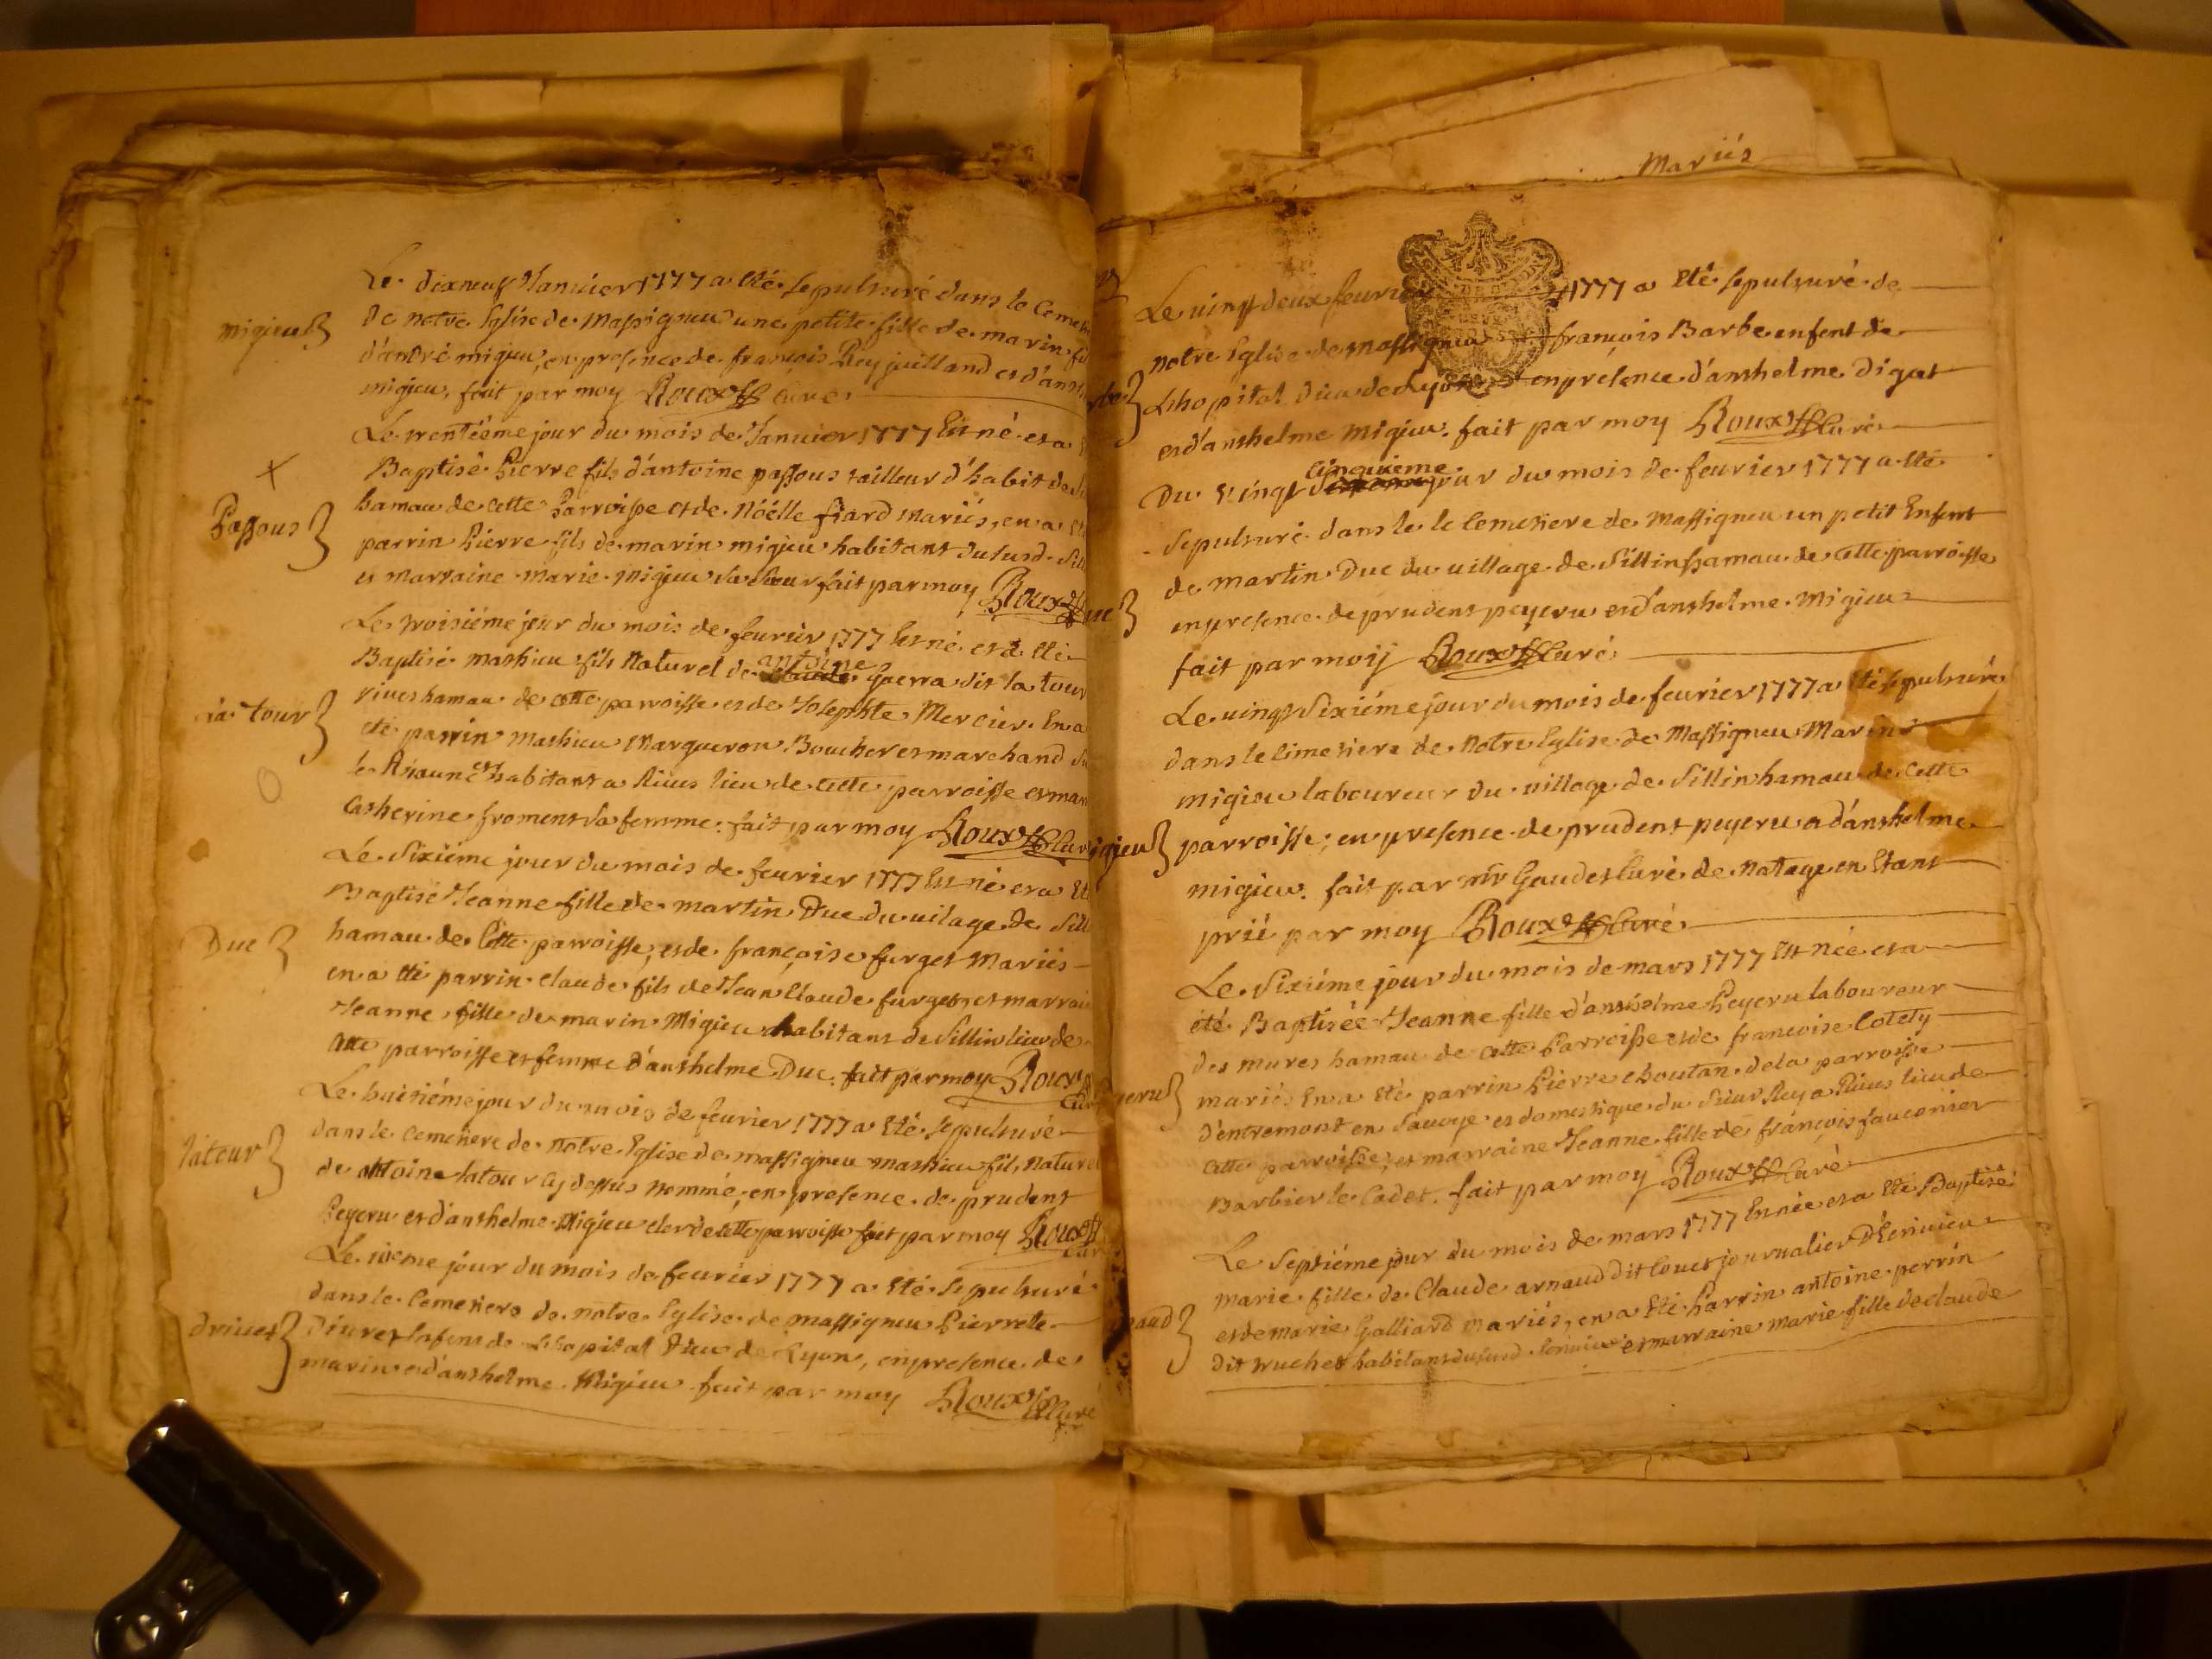 migieu
Le dixneuf Janvier 1777 a été sepulturé dans le Cemet
de notre Eglise de Massigneu une petite fille de marin fi
d'andré migieu, en presence de françois Rey juilland et d'anth
migieu, fait par moy Roux curé
Le trentième jour du mois de Janvier 1777 Est né et a
Baptisé Pierre fils d'antoine passous tailleur d'habit de Si
Passous
hamau de cette Parroisse et de Nöélle fiard mariés, en a été
parrin Pierre fils de marin migieu habitant du susd. Sill
et marraine marie migieu sa sœur fait par moy Roux
Le troisiéme jour du mois de fevrier 1777 est né et a été
Baptisé mathieu fils Naturel de antoine Guerra dit la tour
la tour
rives hamau de cette parroisse et de Josephte Mercier. En a
été parrin mathieu Margueron Boucher et marchand
habitant a Rives lieu de cette parroisse et mar
Catherine froment sa femme. fait par moy Roux Cur
Le sixiéme jour du mois de fevrier 1777 Est né et a Et
Baptisé Jeanne fille de martin Duc du vilage de Sill
Duc
hamau de Cette parroisse, et de françoise furget Mariés
en a été parrin claude fils de Jean Claude furget, et marrai
Jeanne fille de marin Migieu habitant de Sillin lieu de
cette parroisse et femme d'anthelme Duc. fait par moy Roux
Cur
Le huitiéme jour du mois de fevrier 1777 a Eté sepulturé
dans le cemetiere de Notre Eglise de massigneu mathieu fils nature
latour
de antoine latour cy dessus nommé, en presence de prudent
Peyeru et d'anthelme Migieu clerc de cette parroisse fait par moy Roux
Cur
Le 10eme jour du mois de fevrier 1777 a Eté sepulturé
dans le Cemetiere de notre Eglise de massigneu Pierrete
drivet
Drivet Enfent de Lhopital Dieu de Lyon, en presence de
marin et d'anthelme Migieu fait par moy Roux Curé
Mariés
Le vingt deux fevrier 1777 a Eté sepulturé de
notre Eglise de massigneu françois Barbe enfent de
rbe
Lhopital Dieu de Lyon et en presence d'anthelme Digat
et d'anthelme Migieu. fait par moy Roux Curé
cinquieme
Du Vingt jour du mois de fevrier 1777 a été
sepulturé dans le le Cemetiere de Massigneu un petit Enfent
de martin Duc du village de Sillin hamau de cette parroisse
uc
en presence de prudent peyeru et d'anthelme Migieu
fait par moij Roux Curé
Le vingt Sixiéme jour du mois de fevrier 1777 a été sepulturé
dans le Cimetiere de Notre Eglise de Massigneu Marin
migieu laboureur du village de Sillin hamau de Cette
igieu
parroisse, en presence de prudent peyeru a d'anthelme
migieu. fait par mr Gaudet Curé de Natage en Etant
prié par moy Roux Curé
Le Sixiéme jour du mois de mars 1777 Est née et a
été Baptisée Jeanne fille d'anthelme Peyeru laboureur
des mures hamau de cette Parroisse et de françoise Cotety
yeru
mariés En a Eté parrin Pierre choutan de la parroisse
d'entremont en Savoye et domestique du Sieur Rey a Rives lieu de
cette parroisse, et marraine Jeanne fille de françois fauconier
Barbier le Cadet. fait par moy Roux Curé
Le Septiéme jour du mois de mars 1777 Est née et a Eté Baptisé
marie fille de Claude arnaud dit Couet journalier D'Ecrivieu
naud
et de marie Galliard mariés, en a Eté Parrin antoine perrin
dit truchet habitant du susd. Ecrivieu et marraine marie fille de claude